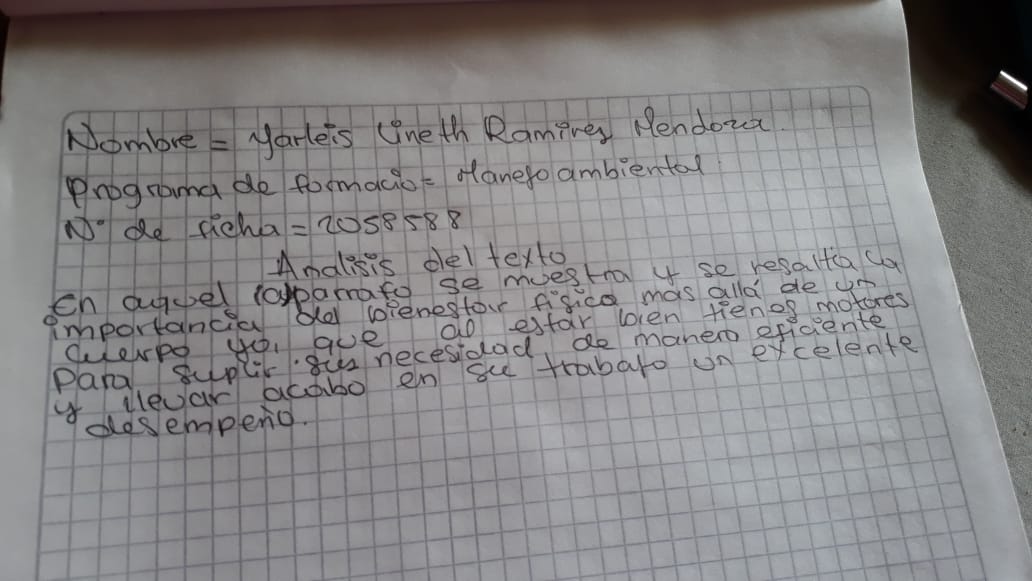 Nombre = Yarleis Lineth Ramires Mendoza.
programa de formacio= Manejo ambiental
N° de ficha = 2058588
Analisis del texto
En aquel parrafo se muestra y se resalta la
importancia del bienestar fisico mas allá de un
cuerpo yo, que al estar bien tienes motores
para suplir sus necesidad de manera eficiente
y llevar acabo en su trabajo un excelente
desempeño.